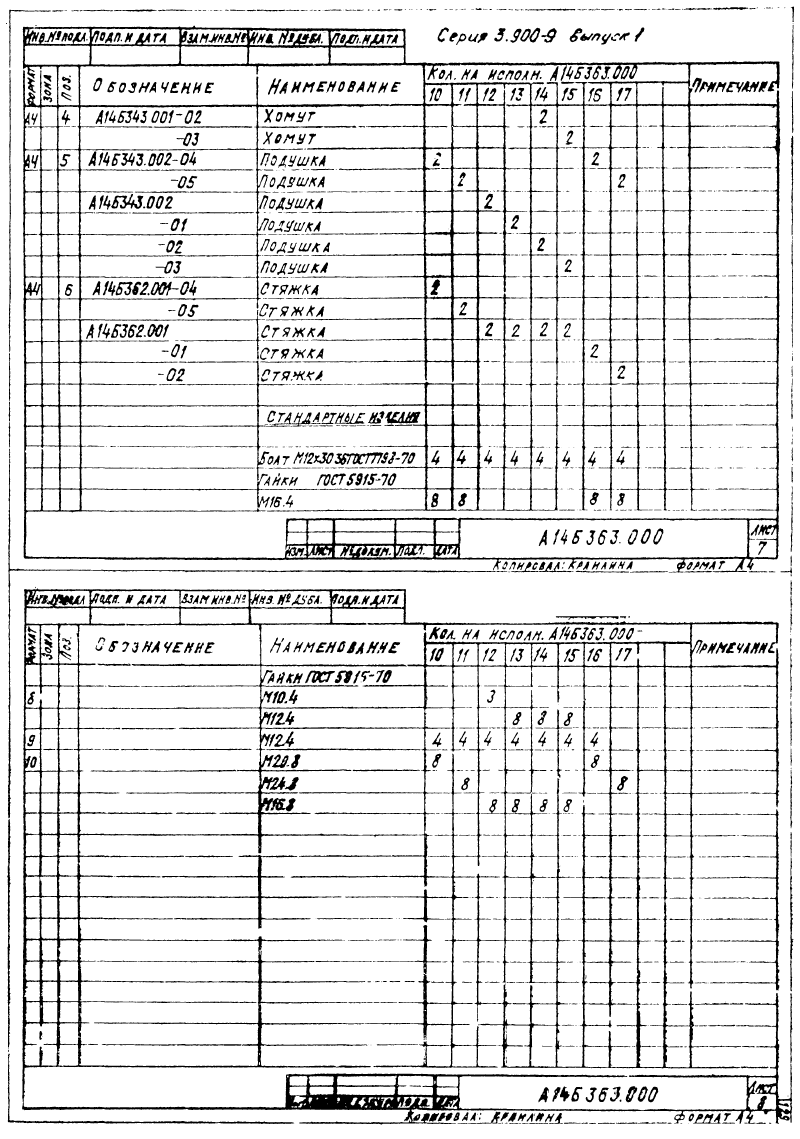 Инв.№подл. Подп. и дата Взам.инв.№ Инв. №дубл. Подп.и дата Серия 3.900-9 выпуск 1
Формат Зона Поз. Обозначение Наименование Кол. на исполн. А14Б363.000 Примечание
10 11 12 13 14 15 16 17
А4 4 А14Б343.001-02 Хомут 2
-03 Хомут 2
А4 5 А14Б343.002-04 Подушка 2 2
-05 Подушка 2 2
А14Б343.002 Подушка 2
-01 Подушка 2
-02 Подушка 2
-03 Подушка 2
А4 6 А14Б362.001-04 Стяжка 2
-05 Стяжка 2
А14Б362.001 Стяжка 2 2 2 2
-01 Стяжка 2
-02 Стяжка 2
Стандартные изделия
Болт М12х30 36 ГОСТ 7798-70 4 4 4 4 4 4 4 4
Гайки ГОСТ 5915-70
М16.4 8 8 8 8
Изм. Лист №докум. Подп. Дата А14Б363.000 Лист 7
Копировал: Кранлина Формат А4
Подп. и дата Взам инв.№ Инв. № дубл. Подп.и дата
Формат Зона Поз. Обозначение Наименование Кол. на исполн. А14Б363.000- Примечание
10 11 12 13 14 15 16 17
Гайки ГОСТ 5915-70
8 М10.4 3
М12.4 8 8 8
9 М12.4 4 4 4 4 4 4 4
10 М20.8 8 8
М24.8 8 8
М16.8 8 8 8 8
А14Б363.000 Лист 8
Копировал: Кранлина Формат А4